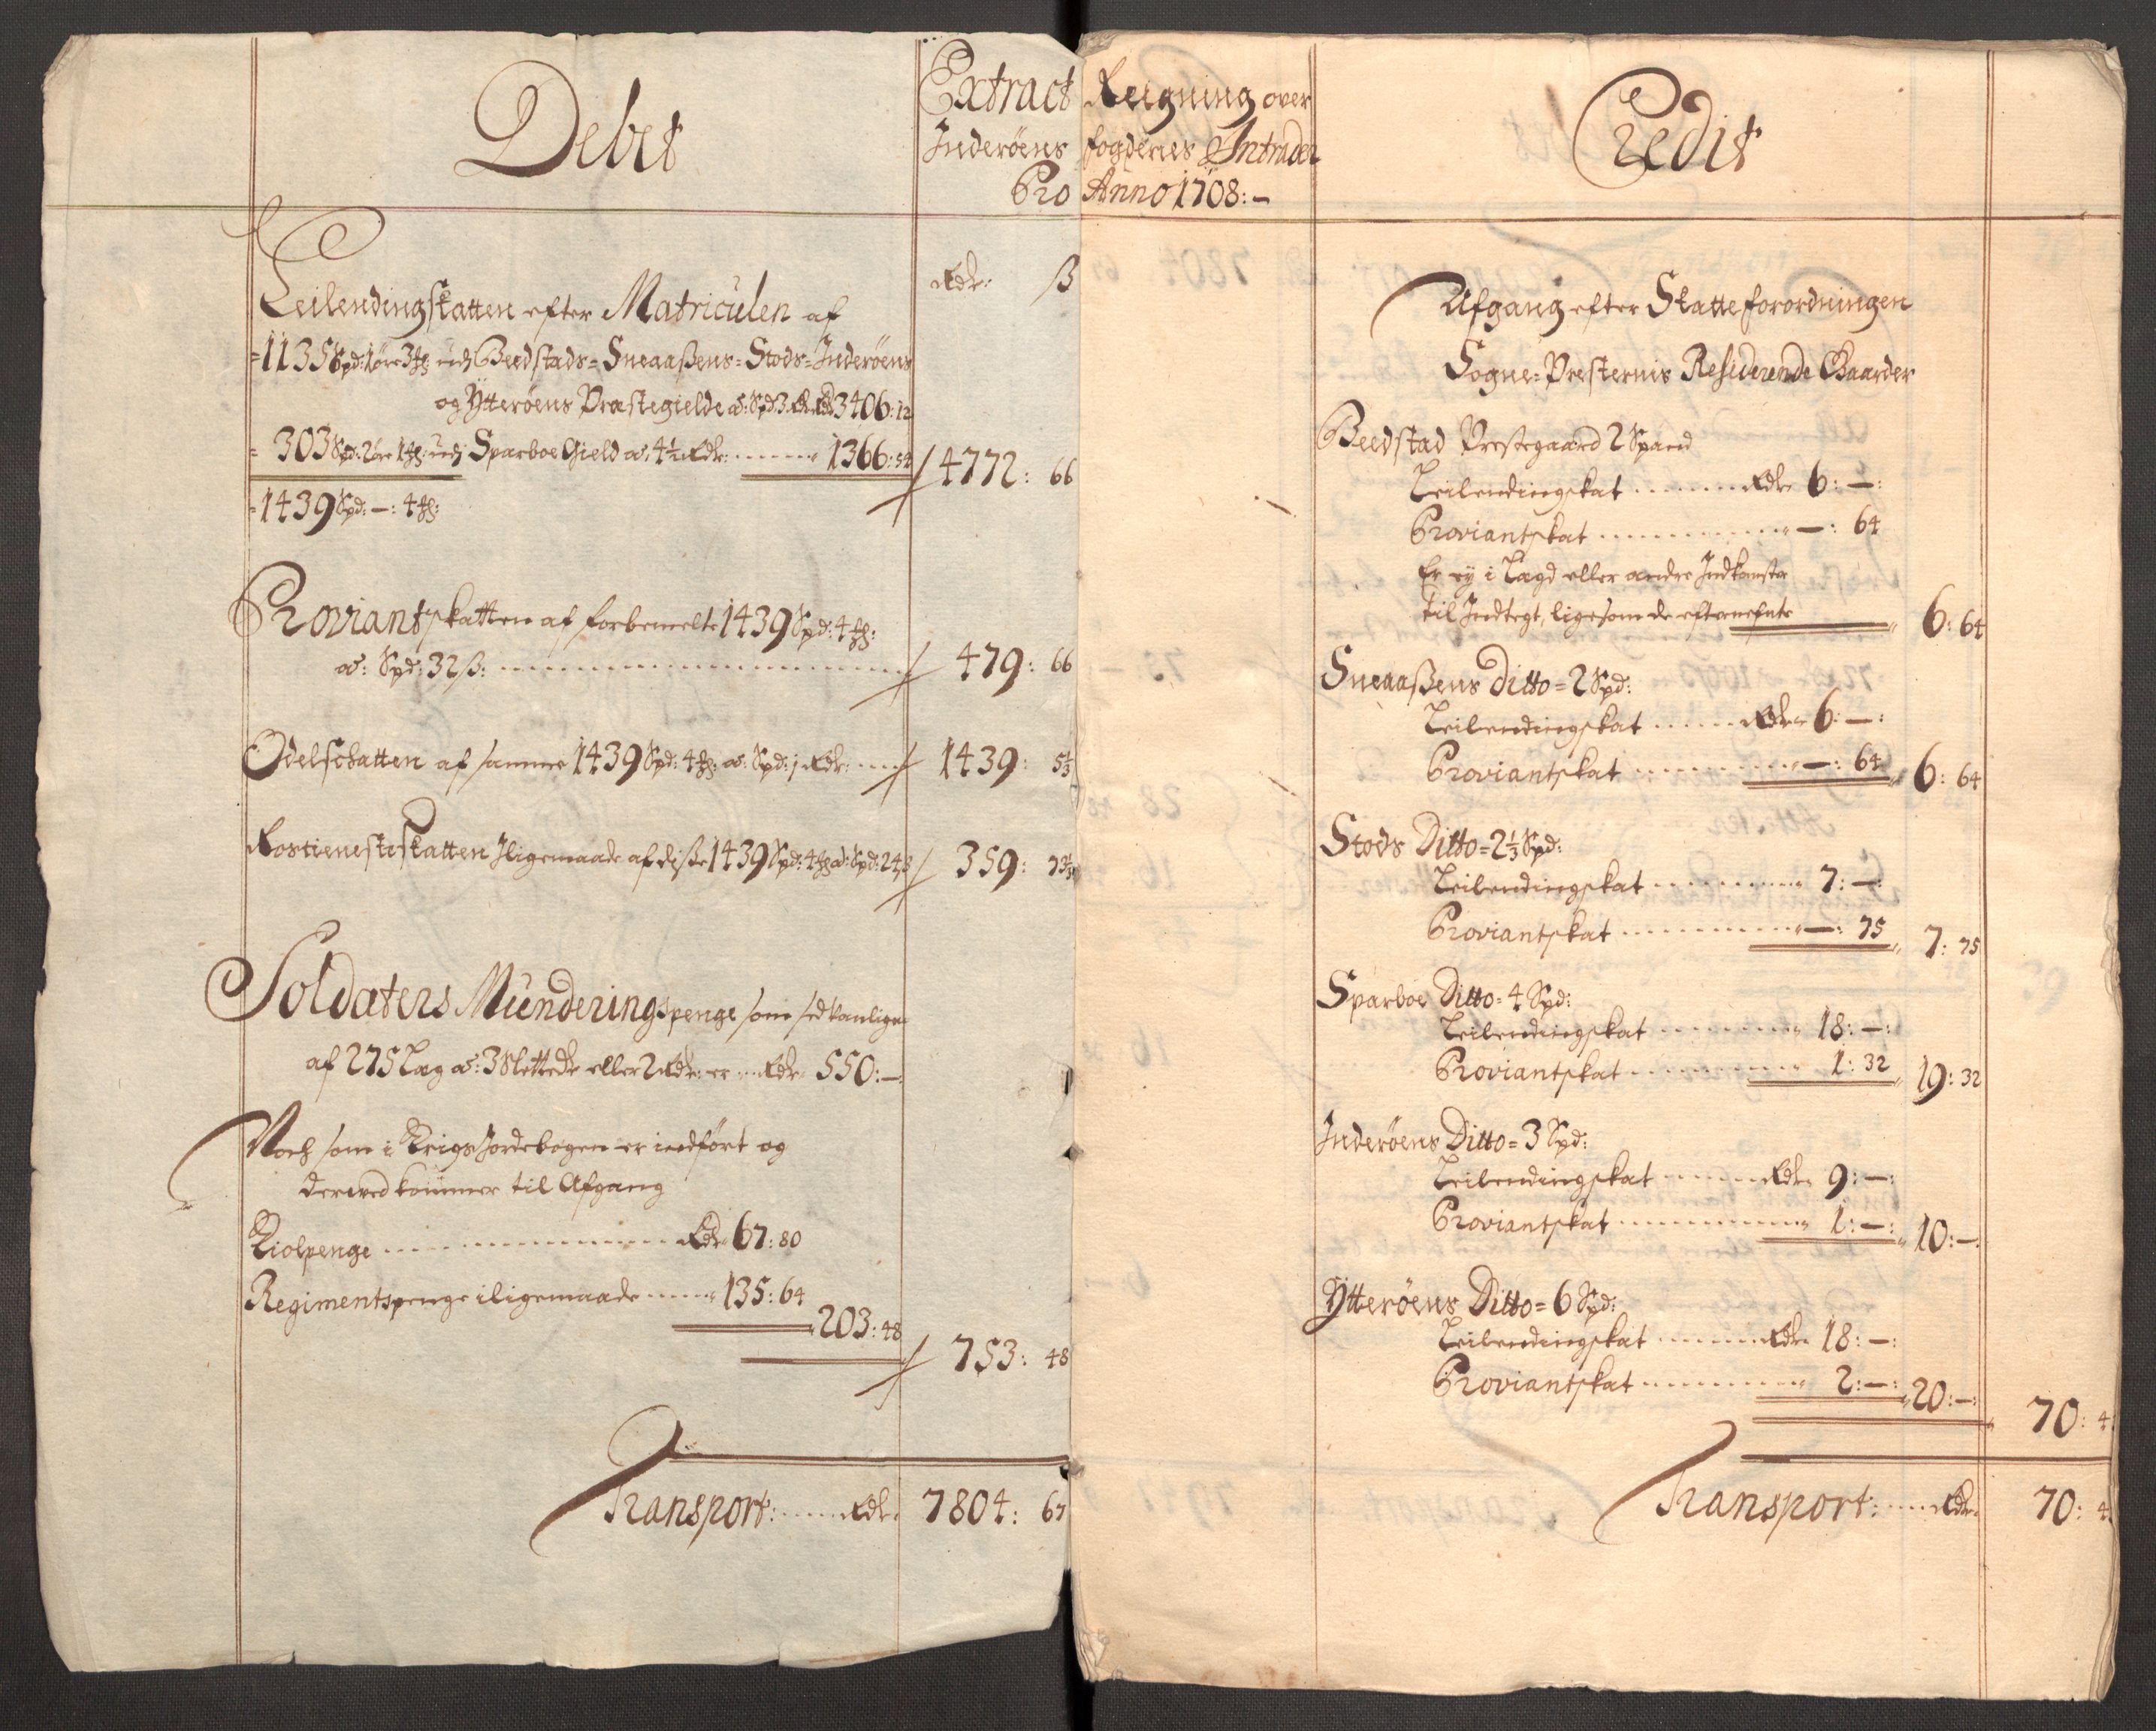 Debet
Extract Reigning over
Inderøens fogderies Intrader
Pro Anno 1708:-
Credit
Rdr: ß
Leilendingskatten efter Matriculen af
=1135 Spd: 1 øre 3 udj Beedstads= Sneaaßens= Stods= Inderøens
og Ytterøens Præstegielde a: Spd 3 Rdr 3406: 12
= 303 Spd: 2 øre 1 udj Sparboe Gield a: 4½ Rdr: 1366: 54 4772: 66
=1439 Spd: -: 4
Proviantskatten af forbemelte 1439 Spd: 4
a: Spd: 32 ß: 479: 66
Odelschatten af samme 1439 Spd: 4 a: Spd: 1 Rdr: 1439: 5⅓
Rostienesteskatten Iligemaade af diße 1439 Spd: 4 ad: Spd: 24 ß 359: 73⅓
Soldaters Munderingspenge som sedvanlige
af 275 Læg a: 3 Slettedr eller 2 Rdr: er Rdr 550:-:
Noch som i Krigs Jordebogen er indført og
derved kommer til Afgang
Kiolpenge Rdr 67: 80
Regimentspenge iligemaade 135: 64
203: 48
753: 48
Transport: Rdr: 7804: 67
Afgang efter Skatteforordningen
Sogne= Presternis Residerende Gaarder
Beedstad Prestegaard 2 Spand
Leilendingskat Rdr 6: -:
Proviantskat -: 64
Er ey i Lægd eller andre Indkomster
til Indtegt, ligesom de efternefnte 6: 64
Sneaaßens Ditto= 2 Spd:
Leilendingskat Rdr 6: -:
Proviantskat -: 64 6: 64
Stods Ditto= 2⅓ Spd:
Leilendingskat 7: -:
Proviantskat -: 75 7: 75
Sparboe Ditto= 4 Spd:
Leilendingskat 18: -:
Proviantskat 1: 32 19: 32
Inderøens Ditto= 3 Spd:
Leilendingskat Rdr 9: -:
Proviantskat 1: -: 10: -:
Ytterøens Ditto= 6 Spd:
Leilendingskat Rdr 18: -:
Proviantskat 2: -: 20: -:
70: 4
Transport: Rdr: 70: 4